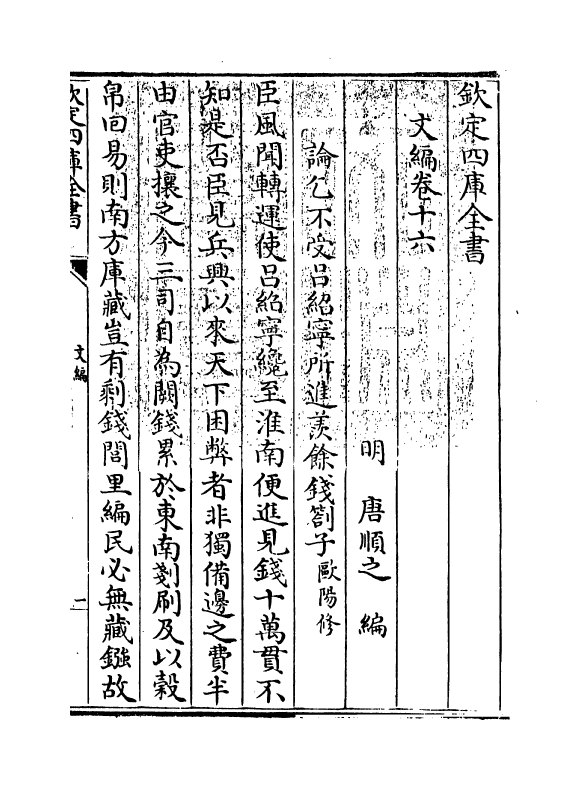 欽定四庫全書
文編卷十六
明 唐順之 編
論乞不受呂紹寧所進羨餘錢劄子歐陽修
臣風聞轉運使呂紹寧纔至淮南便進見錢十萬貫不
知是否臣見兵興以來天下困弊者非獨備邊之費半
由官吏攘之今三司自為闕錢累於東南剗刷及以穀
帛回易則南方庫藏豈有剩錢閭里編民必無藏鏹故
欽定四庫全書
文編
一